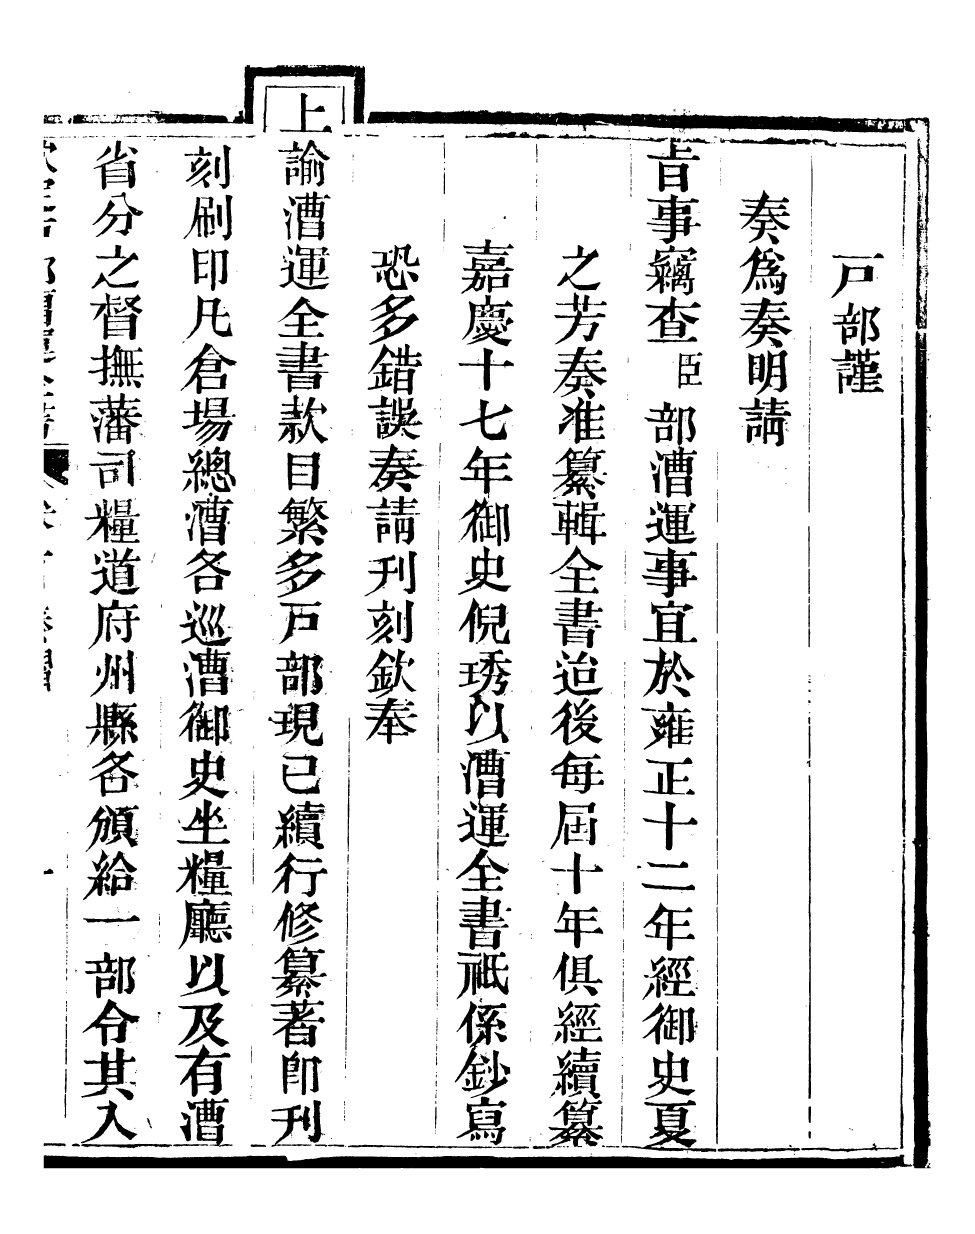 戸部謹
奏為奏明請
旨事竊查臣部漕運事宜於雍正十二年經御史夏
之芳奏准纂輯全書迨後每屆十年俱經續纂
嘉慶十七年御史倪琇以漕運全書祗係鈔寫
恐多錯誤奏請刊刻欽奉
上諭漕運全書款目繁多戸部現已續行修纂著卽刊
刻刷印凡倉場總漕各巡漕御史坐糧廳以及有漕
省分之督撫藩司糧道府州縣各頒給一部令其入